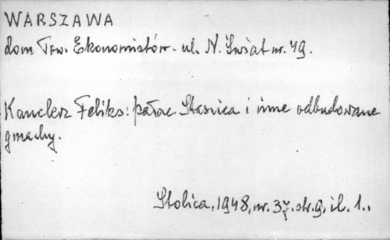 WARSZAWA
dom Tow. Ekonomistów - ul. N. Świat nr. 49.
Kanclerz Feliks: pałac Staszica i inne odbudowane
gmachy.
Stolica, 1948, nr. 37, str. 9, il. 1.,